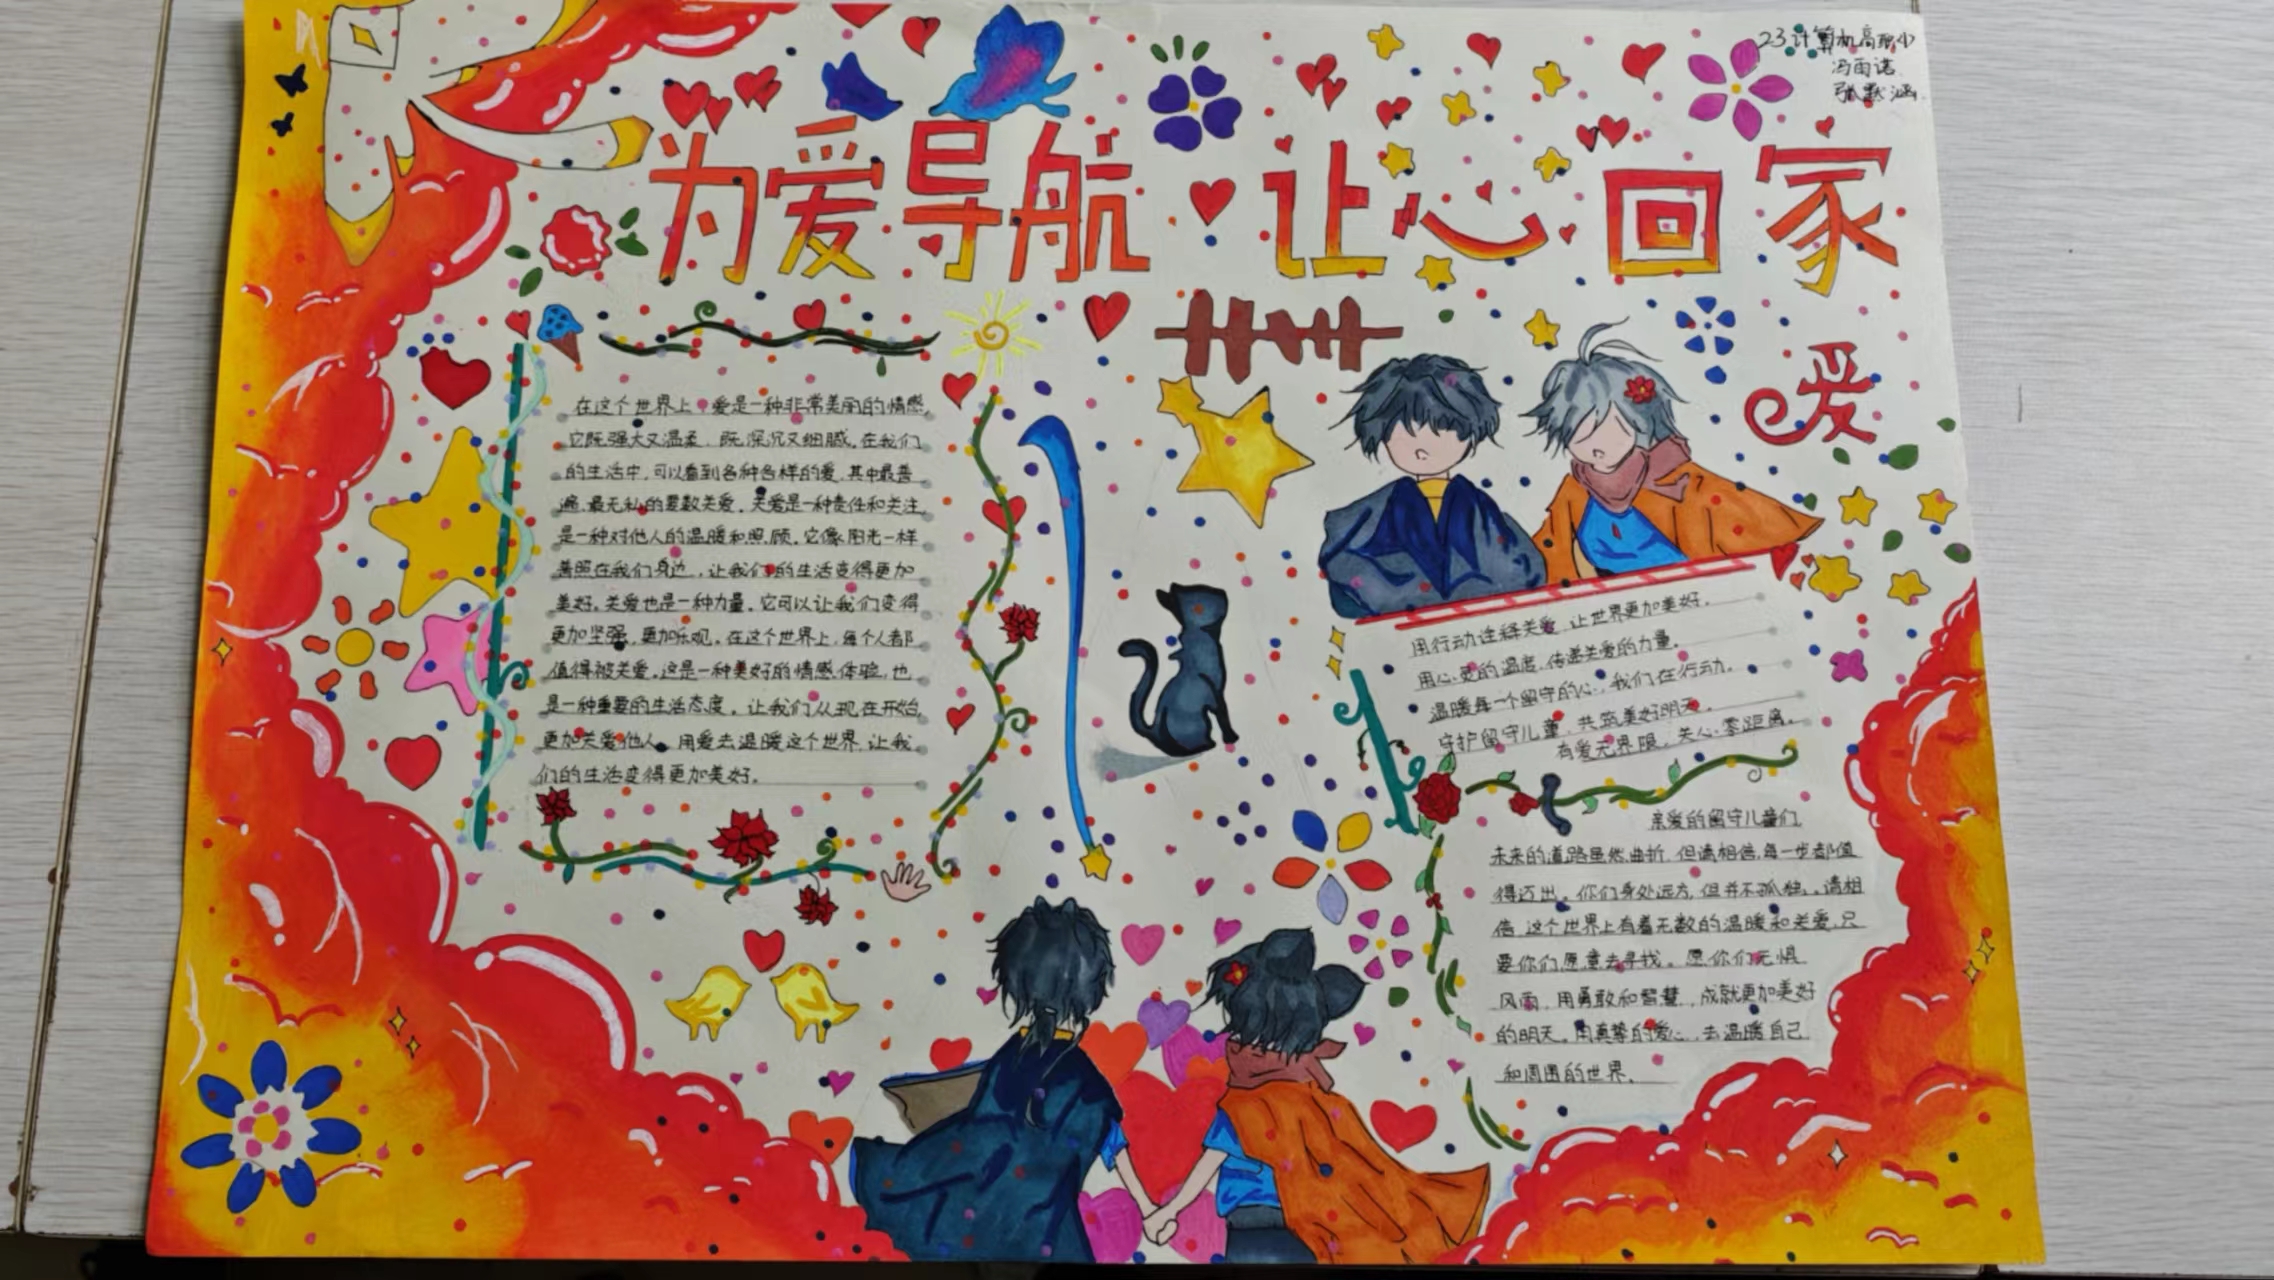 23计算机高职小
冯雨诺
张默涵
为爱导航 让心回家
爱
在这个世界上，爱是一种非常美丽的情感，
它既强大又温柔，既深沉又细腻。在我们
的生活中，可以看到各种各样的爱，其中最普
遍、最无私的要数关爱。关爱是一种责任和关注，
是一种对他人的温暖和照顾。它像阳光一样
普照在我们身边，让我们的生活变得更加
美好。关爱也是一种力量，它可以让我们变得
更加坚强，更加乐观。在这个世界上，每个人都
值得被关爱。这是一种美好的情感体验，也
是一种重要的生活态度。让我们从现在开始，
更加关爱他人，用爱去温暖这个世界，让我
们的生活变得更加美好。
用行动诠释关爱，让世界更加美好。
用心灵的温度，传递关爱的力量。
温暖每一个留守的心，我们在行动。
守护留守儿童，共筑美好明天。
有爱无界限，关心零距离。
亲爱的留守儿童们，
未来的道路虽然曲折，但请相信，每一步都值
得迈出。你们身处远方，但并不孤独。请相
信，这个世界上有着无数的温暖和关爱，只
要你们愿意去寻找。愿你们无惧
风雨，用勇敢和智慧，成就更加美好
的明天。用真挚的爱心，去温暖自己
和周围的世界。